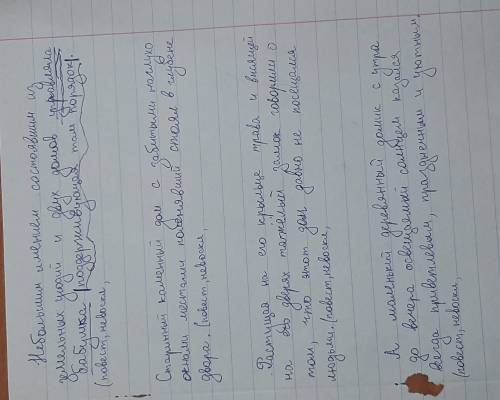 Небольшим имением состоявшим из
земельных угодий и двух домов управляла
бабушка поддерживующая там порядок.
(повест, невоскл,
Старинный каменный дом с забитыми наглухо
окнами ментами стоял в глубене
двора. (повест, невоскл,
Растущая на его крыльце трава и висящий
на его дверях тяжелый замок говорили о
том, что этот дом давно не посещался
людьми. (повест, невоскл,
А маленький деревянный домик с утра
до вечера освещаемый солнцем казался
всегда приветлевым, праздничным и уютным.
(повест, невоскл,